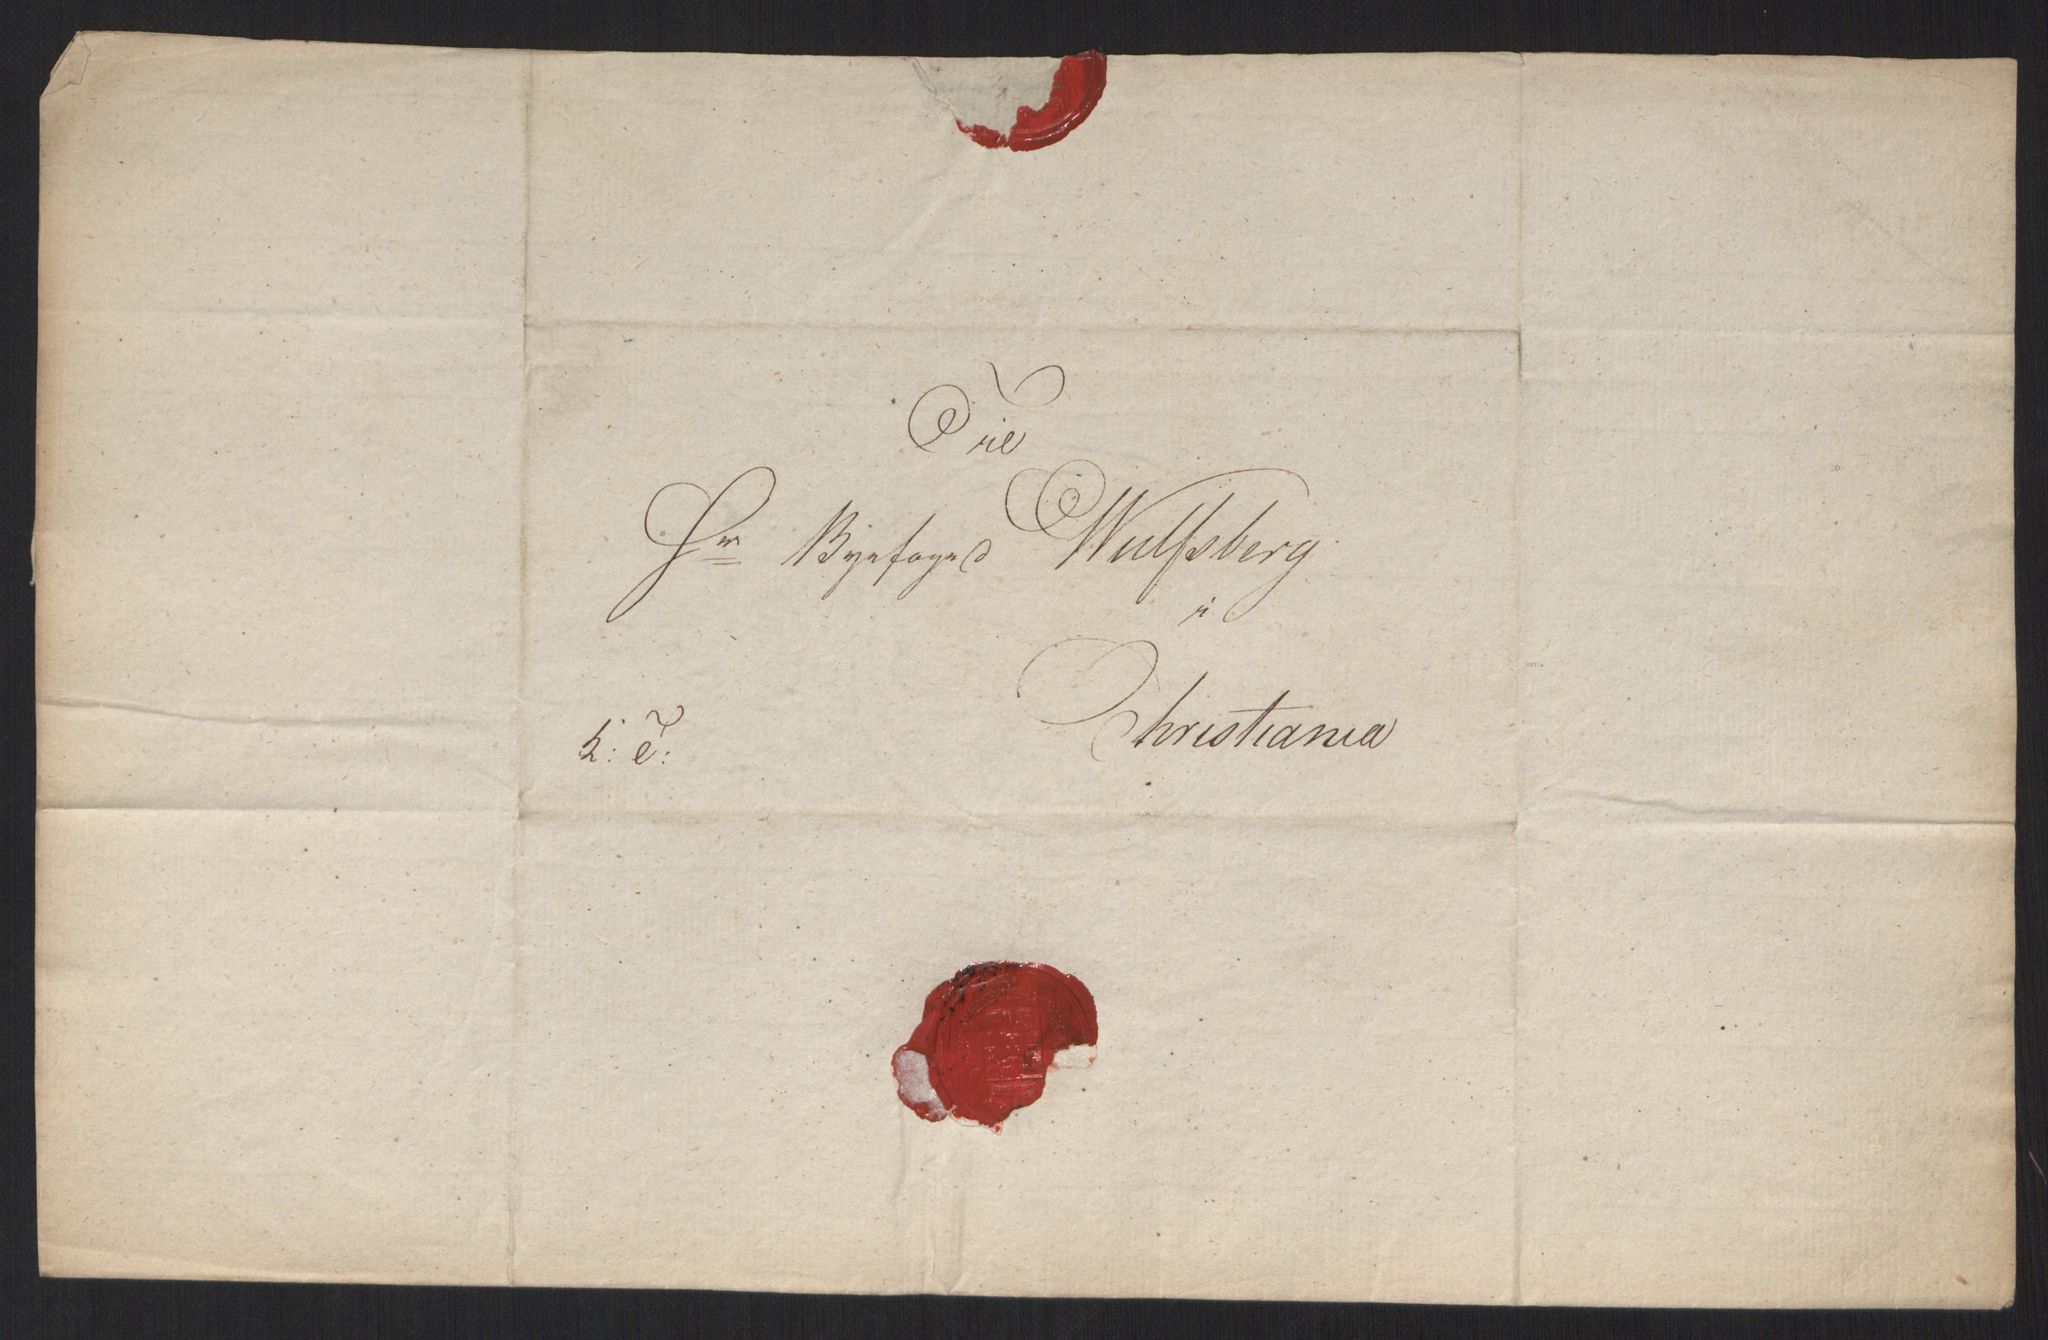 Til
Hr Byefoged Wulfsberg
i
Christiania
K: T: